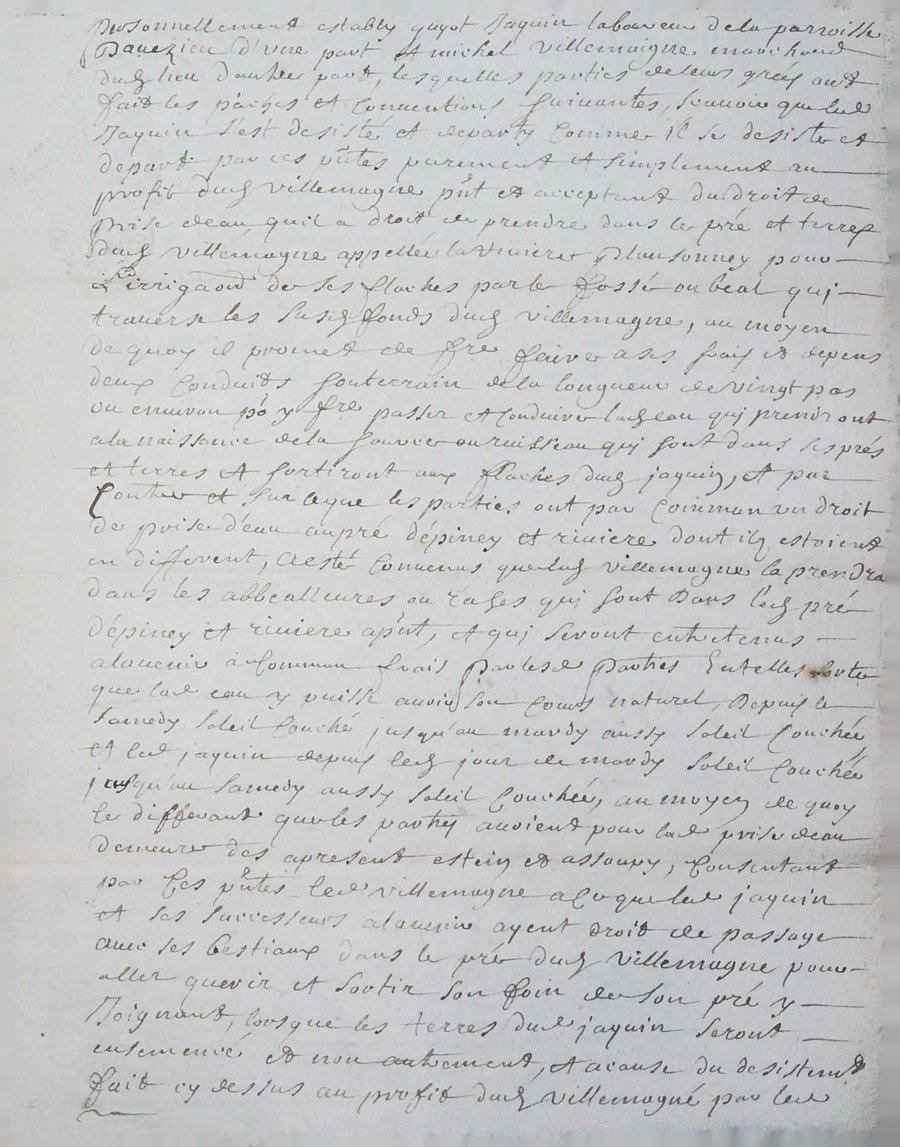 Personnellement estably guyot Jaquin laboureur de la parroisse
Davezieu d'une part et michel villemaigne marchand
dud lieu d'autre part, lesquelles parties de leurs gréz ont
fait les paches et conventions suivantes, scavoir que led
Jaquin s'est desisté et departy comme il se desiste et
depart par ces pntes purement et simplement au
profit dud villemagne pnt et acceptant du droit de
prise deau quil a droit de prendre dans le pré et terres
dud villemagne appellée la riviere pour
L'irrigaon de ses flaches par le fossé ou béal qui
traverse les susd fonds dud villemagne, au moyen
de quoy il promet de fre faire a ses frais et depens
deux conduits souterrain de la longueur de vingt pas
ou environ po y fre passer et conduire lad eau qui prendront
a la naissance de la source ou ruisseau qui sont dans ses prés
et terres et sortiront aux flaches dud jaquin, et par
contre et sur ce que les parties ont par commun un droit
de prise deau au pré dépiney et riviere dont ilz estoient
en different, a esté convenus que led villemagne la prendra
dans les abbealleures ou rases qui sont dans led pré
dépiney et riviere apnt, et qui seront entretenus
alavenir a commun frais par lesd parties en telles sorte
que lad eau y puisse avoir son cours naturel, depuis le
samedy soleil couché jusqu'au mardy aussy soleil couchée
et led jaquin depuis led jour de mardy soleil couchée
jusqu'au samedy aussy soleil couchée, au moyen de quoy
le differant que les parties avoient pour lad prise deau
demeure des apresent estein et assoupy, consentant
par ces pntes led villemagne a ce que led jaquin
et ses successeurs alavenir ayent droit de passage
avec ses bestiaux dans le pré dud villemagne pour
aller querir et sortir son foin de son pré y
Joignant, lorsque les terres dud jaquin seront
ensemencé et non autrement, et a cause du desistemt
fait cy dessus au profit dud villemagne par led